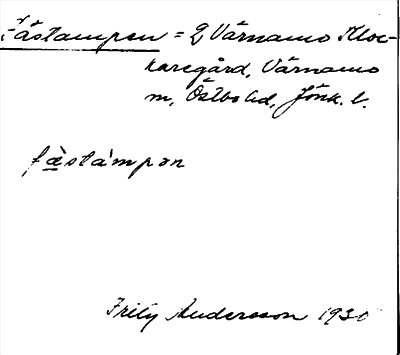 Fästampen = 2 Värnamo Kloc-
karegård, Värnamo
m, Östbo hd, Jönk. l.
fästampən
Fritz Andersson 1930